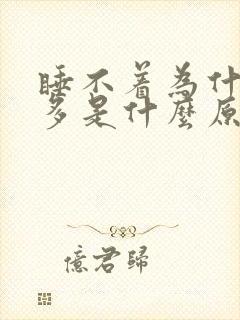 睡不着為什
多是什麼原
億君歸